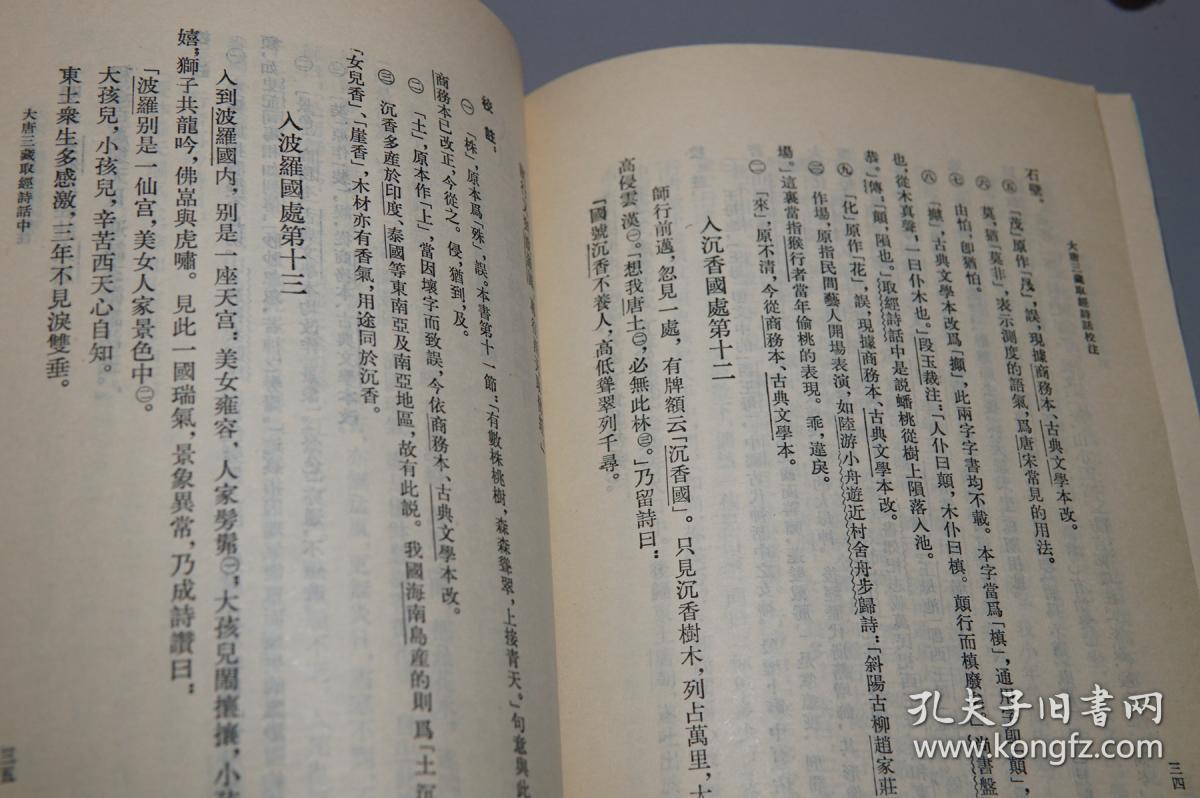 大唐三藏取經詩話校注
石壁。
㊄「茂」原作「」,誤,現據商務本、古典文學本改。
㊅ 莫,猶「莫非」,表示測度的語氣,爲唐宋常見的用法。
㊆ 由怕,卽猶怕。
㊇「攧」,古典文學本改爲「攧」,此兩字字書均不載。本字當爲「槙」,通用卽「顛」,
也,從木真聲,一曰仆木也。」段玉裁注:「人仆曰顛,木仆曰槙。顛行而槙廢矣。」尚書盤
恭。」傳:「顛,隕也。」取經詩話中是説蟠桃從樹上隕落入池。
㊈「化」原作「花」,誤,現據商務本、古典文學本改。
㊂ 作場,原指民間藝人開場表演,如陸游小舟遊近村舍舟步歸詩:「斜陽古柳趙家莊
場。」這裏當指猴行者當年偷桃的表現。乖,違戾。
㊀「來」,原不清,今從商務本、古典文學本。
入沉香國處第十二
師行前邁,忽見一處,有牌額云「沉香國」。只見沉香樹木,列占萬里,大
高侵雲漢㊀。「想我唐土㊁,必無此林㊂。」乃留詩曰:
「國號沉香不養人,高低聳翠列千尋。
三四
校註:
㊀「株」,原本爲「殊」,誤。本書第十一節:「有數株桃樹,森森聳翠,上接青天。」句意與此
商務本已改正,今從之。侵,猶到,及。
㊁「土」,原本作「上」,當因壞字而致誤,今依商務本、古典文學本改。
㊂ 沉香多產於印度、泰國等東南亞及南亞地區,故有此説。我國海南島産的則爲「土沉
「女兒香」、「崖香」,木材亦有香氣,用途同於沉香。
入波羅國處第十三
入到波羅國内,别是一座天宫:美女雍容,人家髣髴㊀;大孩兒鬧攘攘,小
嬉;獅子共龍吟,佛嵓與虎嘯。見此一國瑞氣,景象異常,乃成詩讚曰:
「波羅别是一仙宫,美女人家景色中㊁。
大孩兒,小孩兒,辛苦西天心自知。
東土衆生多感激,三年不見淚雙垂。
大唐三藏取經詩話中
三五
孔夫子旧书网
www.kongfz.com